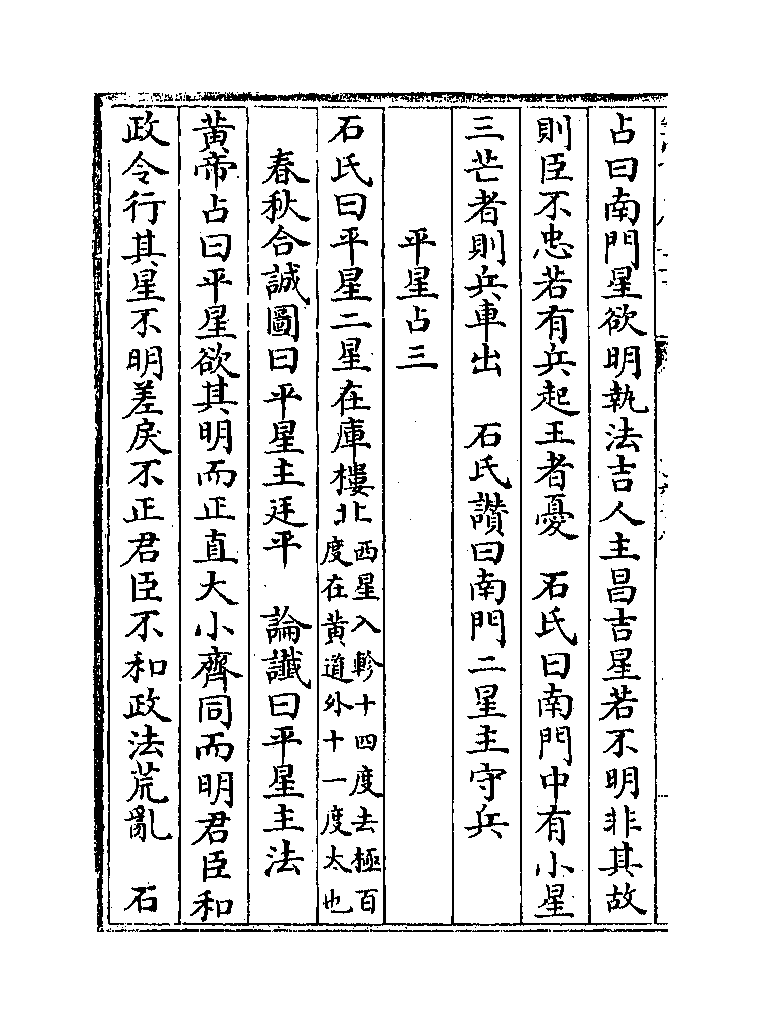 占曰南門星欲明執法吉人主昌吉星若不明非其故
則臣不忠若有兵起王者憂　石氏曰南門中有小星
三芒者則兵車出　石氏讃曰南門二星主守兵
平星占三
石氏曰平星二星在庫樓北西星入軫十四度去極百
度在黄道外十一度太也
春秋合誠圖曰平星主廷平　論讖曰平星主法
黄帝占曰平星欲其明而正直大小齊同而明君臣和
政令行其星不明差戾不正君臣不和政法荒亂　石